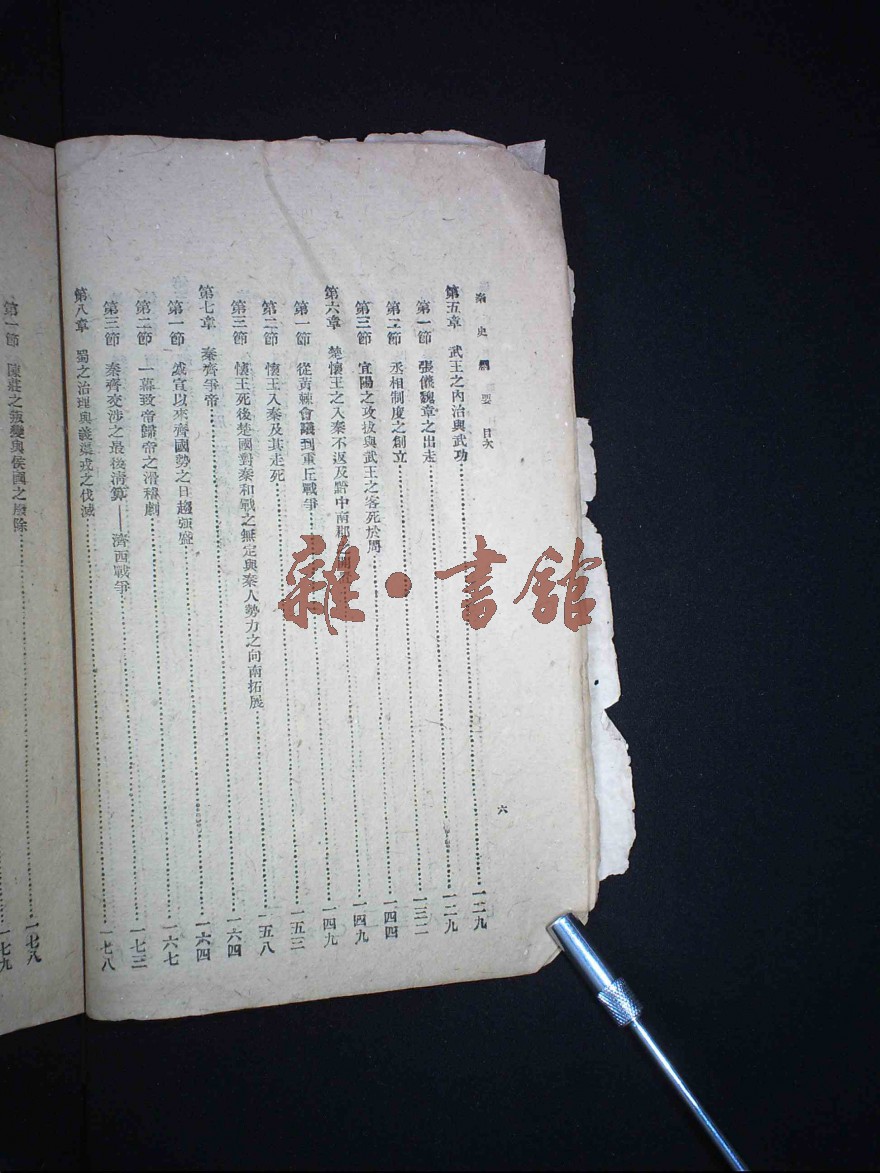 秦史綱要 目次
六
第五章 武王之內治與武功……一二九
第一節 張儀魏章之出走……一二九
第二節 丞相制度之創立……一三二
第三節 宜陽之攻拔與武王之客死於周……一四四
第六章 楚懷王之入秦不返及黔中南郡……一四九
第一節 從黃棘會議到重丘戰爭……一四九
第二節 懷王入秦及其走死……一五三
第三節 懷王死後楚國對秦和戰之無定與秦人勢力之向南拓展……一五八
第七章 秦齊爭帝……一六四
第一節 威宣以來齊國勢之日趨強盛……一六四
第二節 一幕致帝歸帝之滑稽劇……一六七
第三節 秦齊交涉之最後清算——濟西戰爭……一七三
第八章 蜀之治理與義渠戎之伐滅……一七八
第一節 陳莊之叛變與侯國之廢除……一七八
一七九
雜·書館